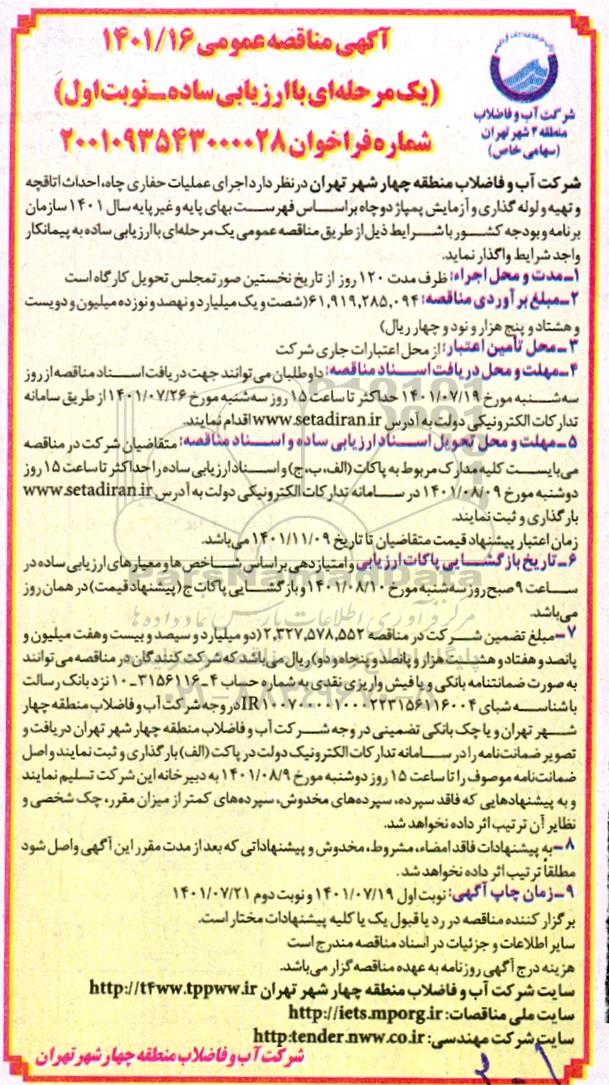 آگهی مناقصه عمومی ۱۴۰۱/۱۶
(یک مرحله‌ای با ارزیابی ساده-نوبت اول)
شماره فراخوان ۲۰۰۱۰۹۳۵۴۳۰۰۰۰۲۸
شرکت آب و فاضلاب
منطقه ۴ شهر تهران
(سهامی خاص)
شرکت آب و فاضلاب منطقه چهار شهر تهران در نظر دارد اجرای عملیات حفاری چاه، احداث اتاقچه
و تهیه و لوله گذاری و آزمایش پمپاژ دو چاه بر اساس فهرست بهای پایه و غیر پایه سال ۱۴۰۱ سازمان
برنامه و بودجه کشور با شرایط ذیل از طریق مناقصه عمومی یک مرحله‌ای با ارزیابی ساده به پیمانکار
واجد شرایط واگذار نماید.
۱-مدت و محل اجراء: ظرف مدت ۱۲۰ روز از تاریخ نخستین صورتمجلس تحویل کارگاه است
۲-مبلغ برآوردی مناقصه: ۶۱,۹۱۹,۲۸۵,۰۹۴(شصت و یک میلیارد و نهصد و نوزده میلیون و دویست
و هشتاد و پنج هزار و نود و چهار ریال)
۳-محل تامین اعتبار: از محل اعتبارات جاری شرکت
۴-مهلت و محل دریافت اسناد مناقصه: داوطلبان می‌توانند جهت دریافت اسناد مناقصه از روز
سه‌شنبه مورخ ۱۴۰۱/۰۷/۱۹ حداکثر تا ساعت ۱۵ روز سه‌شنبه مورخ ۱۴۰۱/۰۷/۲۶ از طریق سامانه
تدارکات الکترونیکی دولت به آدرس www.setadiran.ir اقدام نمایند.
۵-مهلت و محل تحویل اسناد ارزیابی ساده و اسناد مناقصه: متقاضیان شرکت در مناقصه
می‌بایست کلیه مدارک مربوط به پاکات (الف، ب، ج) و اسناد ارزیابی ساده را حداکثر تا ساعت ۱۵ روز
دوشنبه مورخ ۱۴۰۱/۰۸/۰۹ در سامانه تدارکات الکترونیکی دولت به آدرس www.setadiran.ir
بارگذاری و ثبت نمایند.
زمان اعتبار پیشنهاد قیمت متقاضیان تا تاریخ ۱۴۰۱/۱۱/۰۹ می‌باشد.
۶-تاریخ بازگشایی پاکات ارزیابی و امتیازدهی بر اساس شاخص‌ها و معیارهای ارزیابی ساده در
ساعت ۹ صبح روز سه‌شنبه مورخ ۱۴۰۱/۰۸/۱۰ و بازگشایی پاکات ج (پیشنهاد قیمت) در همان روز
می‌باشد.
۷-مبلغ تضمین شرکت در مناقصه ۲,۳۲۷,۵۷۸,۵۵۲ (دو میلیارد و سیصد و بیست و هفت میلیون و
پانصد و هفتاد و هشت هزار و پانصد و پنجاه و دو) ریال می‌باشد که شرکت کنندگان در مناقصه می‌توانند
به صورت ضمانتنامه بانکی و یا فیش واریزی نقدی به شماره حساب ۴-۳۱۵۶۱۱۶-۱۰ نزد بانک رسالت
با شناسه شبای IR۱۰۰۷۰۰۰۰۱۰۰۰۲۲۳۱۵۶۱۱۶۰۰۴ در وجه شرکت آب و فاضلاب منطقه چهار
شهر تهران و یا چک بانکی تضمینی در وجه شرکت آب و فاضلاب منطقه چهار شهر تهران دریافت و
تصویر ضمانت‌نامه را در سامانه تدارکات الکترونیک دولت در پاکت (الف) بارگذاری و ثبت نمایند و اصل
ضمانت‌نامه موصوف را تا ساعت ۱۵ روز دوشنبه مورخ ۱۴۰۱/۰۸/۹ به دبیرخانه این شرکت تسلیم نمایند
و به پیشنهادهایی که فاقد سپرده، سپرده‌های مخدوش، سپرده‌های کمتر از میزان مقرر، چک شخصی و
نظایر آن ترتیب اثر داده نخواهد شد.
۸-به پیشنهادات فاقد امضاء، مشروط، مخدوش و پیشنهاداتی که بعد از مدت مقرر این آگهی واصل شود
مطلقا ترتیب اثر داده نخواهد شد.
۹-زمان چاپ آگهی: نوبت اول ۱۴۰۱/۰۷/۱۹ و نوبت دوم ۱۴۰۱/۰۷/۲۱
برگزار کننده مناقصه در رد یا قبول یک یا کلیه پیشنهادات مختار است.
سایر اطلاعات و جزئیات در اسناد مناقصه مندرج است
هزینه درج آگهی روزنامه به عهده مناقصه گزار می‌باشد.
سایت شرکت آب و فاضلاب منطقه چهار شهر تهران http://t4ww.tppww.ir
سایت ملی مناقصات: http://iets.mporg.ir
سایت شرکت مهندسی: http:tender.nww.co.ir
شرکت آب و فاضلاب منطقه چهار شهر تهران